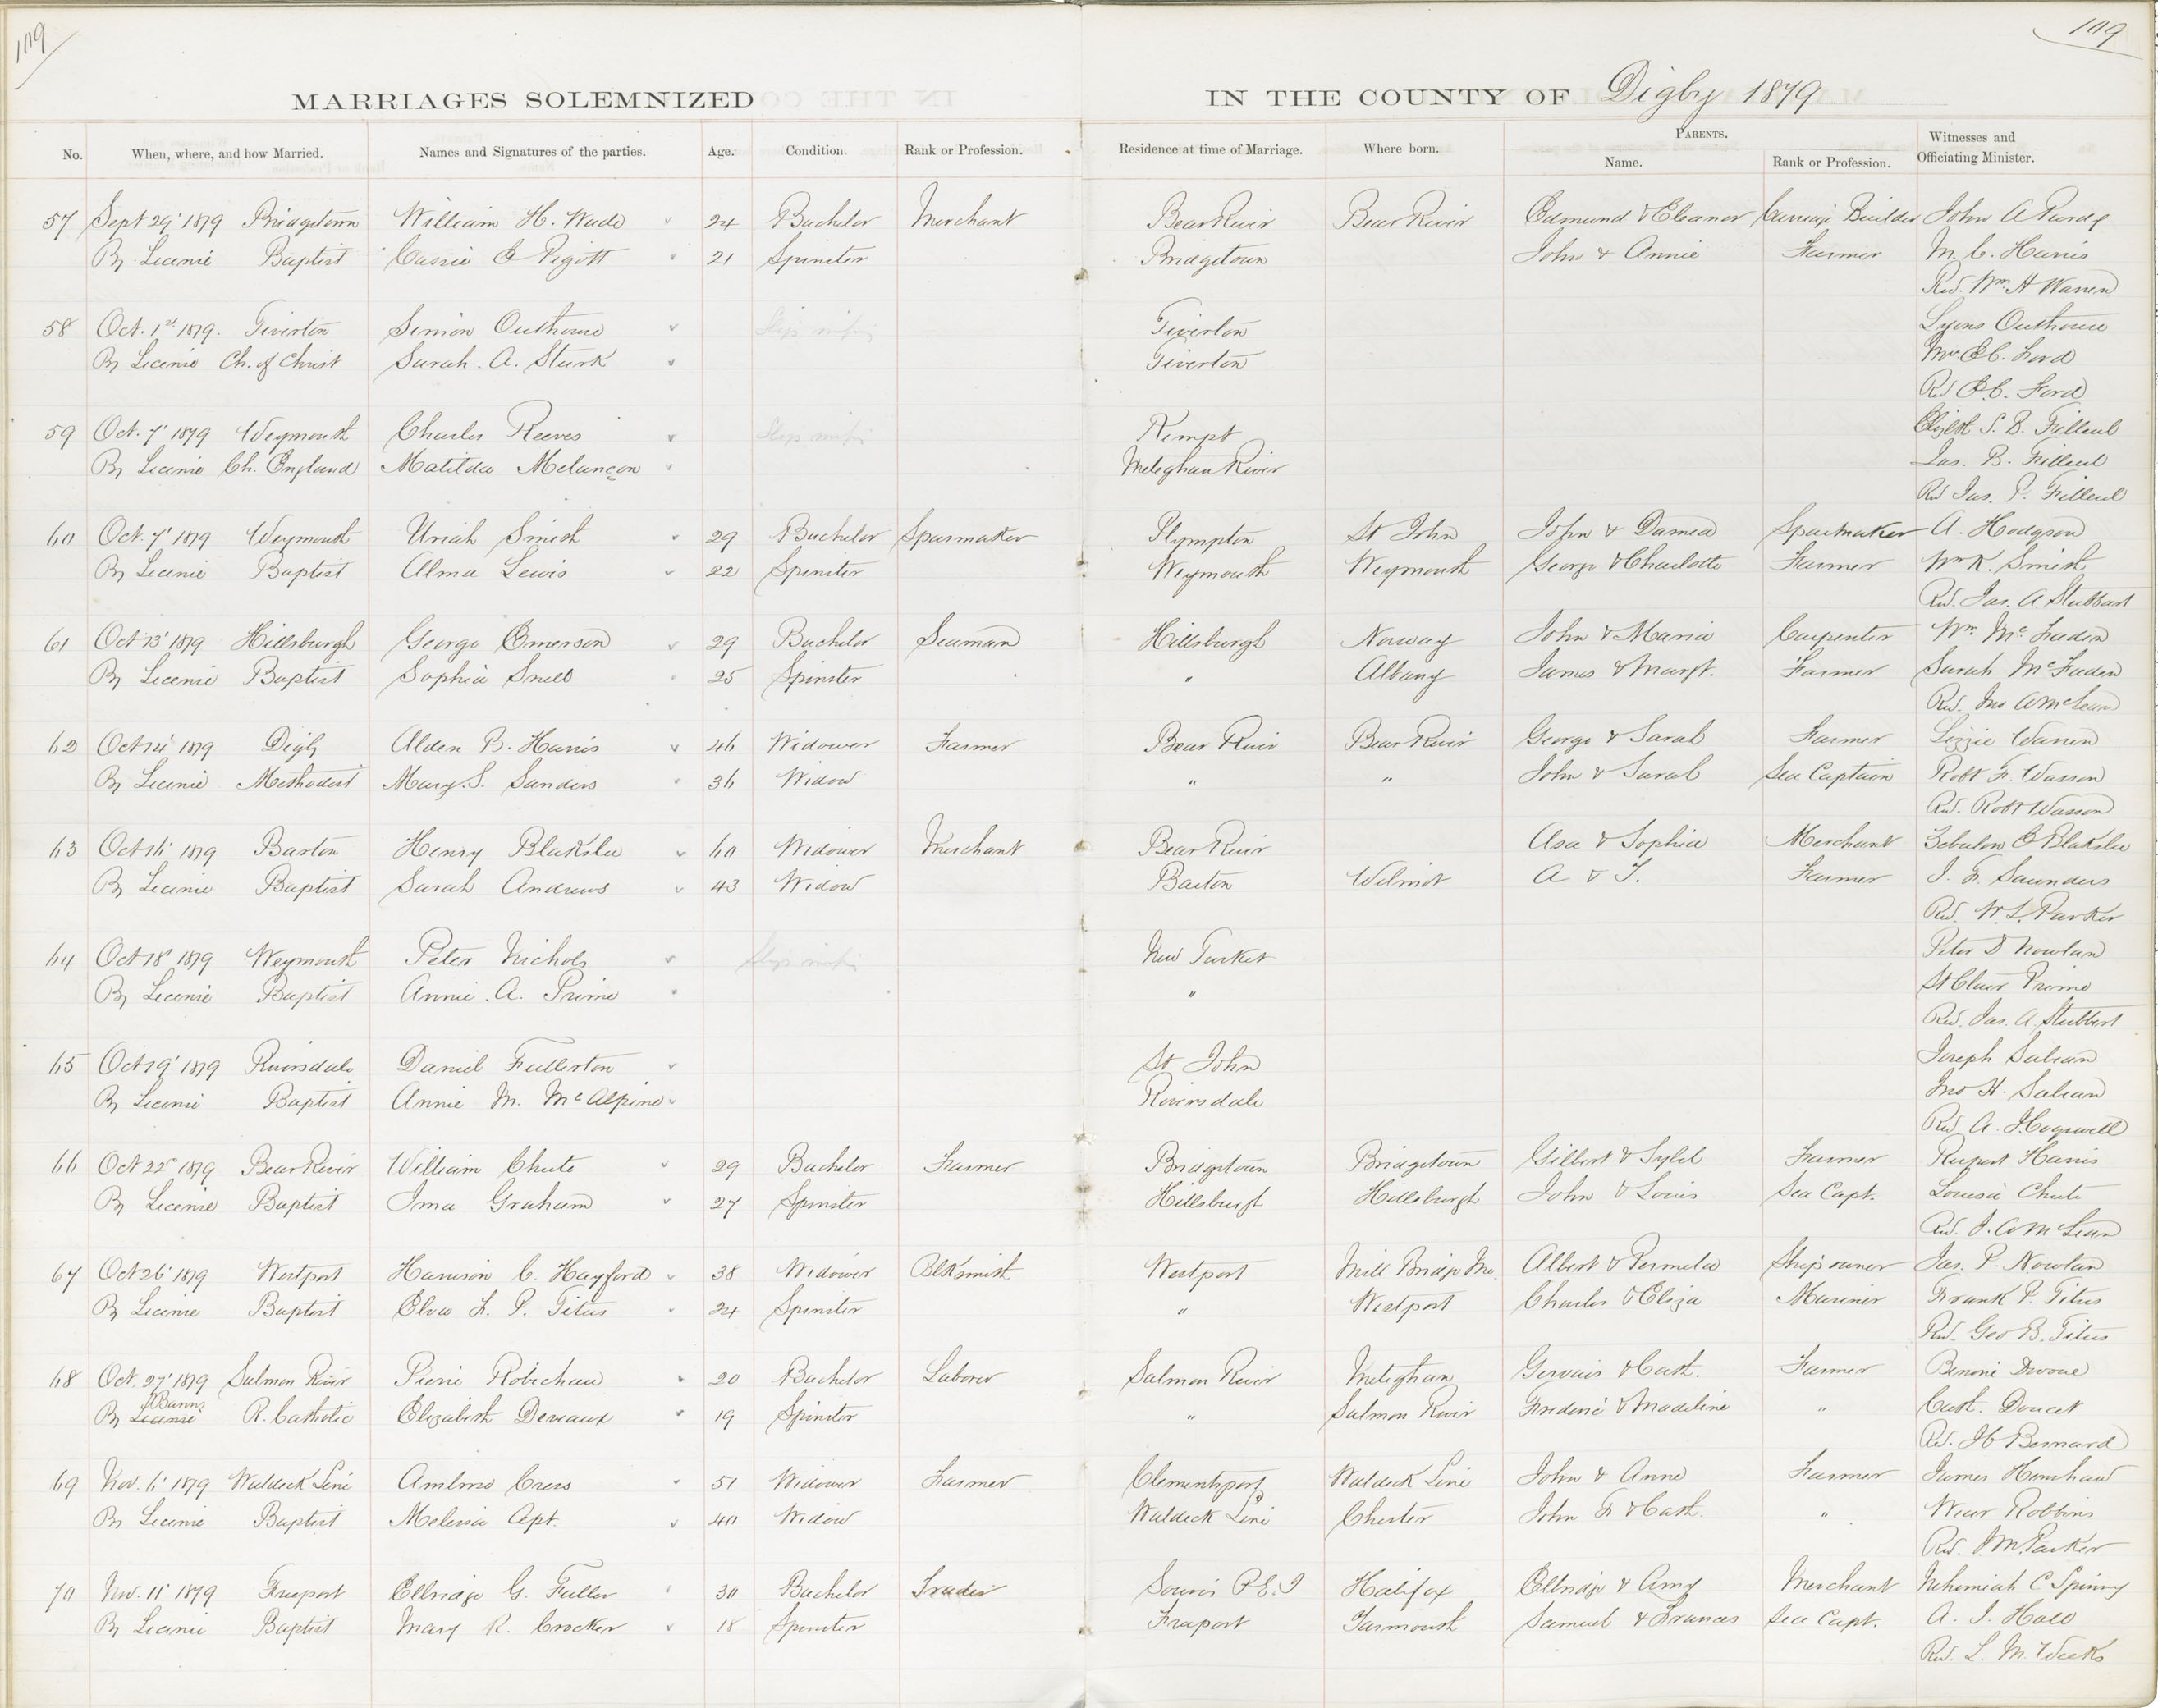 109
109
MARRIAGES SOLEMNIZED IN THE COUNTY OF Digby 1879
No. When, where, and how Married. Names and Signatures of the parties. Age. Condition. Rank or Profession. Residence at time of Marriage. Where born. PARENTS. Name. Rank or Profession. Witnesses and Officiating Minister.
57 Sept 29' 1879 Bridgetown William H. Wade 24 Bachelor Merchant Bear River Bear River Edmund & Eleanor Carriage Builder John A Purdy
By License Baptist Cassie E Pigott 21 Spinster Bridgetown John & Annie Farmer M. C. Harris
Rev. Wm H Warren
58 Oct. 1st 1879. Tiverton Simion Outhouse Slip missing Tiverton Lyons Outhouse
By License Ch. of Christ Sarah. A. Sturk Tiverton Mrs E C. Ford
Rev E. C. Ford
59 Oct. 7' 1879 Weymouth Charles Reeves Slip missing Kempt Elizbt S. B. Filleul
By License Ch. England Matilda Melançon Meteghan River Jas. B. Filleul
Rev Jas. P. Filleul
60 Oct. 7' 1879 Weymouth Uriah Smith 29 Bachelor Sparmaker Plympton St John John & Damea Sparmaker A. Hodgson
By License Baptist Alma Lewis 22 Spinster Weymouth Weymouth George & Charlotte Farmer Wm K. Smith
Rev. Jas. A Stubbart
61 Oct 13' 1879 Hillsburgh George Emerson 29 Bachelor Seaman Hillsburgh Norway John & Maria Carpenter Wm McFaden
By License Baptist Sophia Snell 25 Spinster " Albany James & Margt. Farmer Sarah McFaden
Rev. Jno A McLean
62 Oct 14' 1879 Digby Alden B. Harris 46 Widower Farmer Bear River Bear River George & Sarah Farmer Lizzie Warren
By License Methodist Mary. S. Sanders 36 Widow " " John & Sarah Sea Captain Robt F. Wasson
Rev. Robt Wasson
63 Oct 16' 1879 Barton Henry Blakslee 60 Widower Merchant Bear River Asa & Sophia Merchant Zebulon E Blakslee
By License Baptist Sarah Andrews 43 Widow Barton Wilmot A & T. Farmer J. F. Saunders
Rev. W. L. Parker
64 Oct 18' 1879 Weymouth Peter Nichols Slip missing New Tusket Peter D Nowlan
By License Baptist Annie. A. Prime " St Clair Prime
Rev. Jas. A. Stubbert
65 Oct 19' 1879 Riversdale Daniel Fullerton St John Joseph Sabean
By License Baptist Annie M. McAlpine Riversdale Jno H. Sabean
Rev A. Cogswell
66 Oct 22' 1879 Bear River William Chute 29 Bachelor Farmer Bridgetown Bridgetown Gilbert & Sybil Farmer Rupert Harris
By License Baptist Ima Graham 27 Spinster Hillsburgh Hillsburgh John & Louis Sea Capt. Louisa Chute
Rev. J. A McLean
67 Oct 26' 1879 Westport Harrison C. Hayford 38 Widower Blksmith Westport Mill Bridge Me. Albert & Permelia Ship owner Jas. P. Nowlan
By License Baptist Elva L. P. Titus 24 Spinster " Westport Charles & Eliza Mariner Frank P. Titus
Rev. Geo B. Titus
68 Oct. 27' 1879 Salmon River Pierre Robichau 20 Bachelor Laborer Salmon River Meteghan Gervais & Cath. Farmer Benoni
Banns
By License R. Catholic Elizabeth Deveaux 19 Spinster " Salmon River Frederic & Madeline " Cath. Doucet
Rev. Bernard
69 Nov. 6' 1879 Waldeck Line Ambros Cress 51 Widower Farmer Clementsport Waldeck Line John & Anne Farmer James Henshaw
By License Baptist Melissa Apt. 40 Widow Waldeck Line Chester John F & Cath. " Wear Robbins
Rev. J. M. Parker
70 Nov. 11' 1879 Freeport Ellridge G. Fuller 30 Bachelor Trader Souris P. E. I Halifax Ellridge & Amy Merchant Nehemiah C Spinny
By License Baptist Mary R. Crocker 18 Spinster Freeport Yarmouth Samuel & Frances Sea Capt. A. J. Hall
Rev. L. M. Weeks